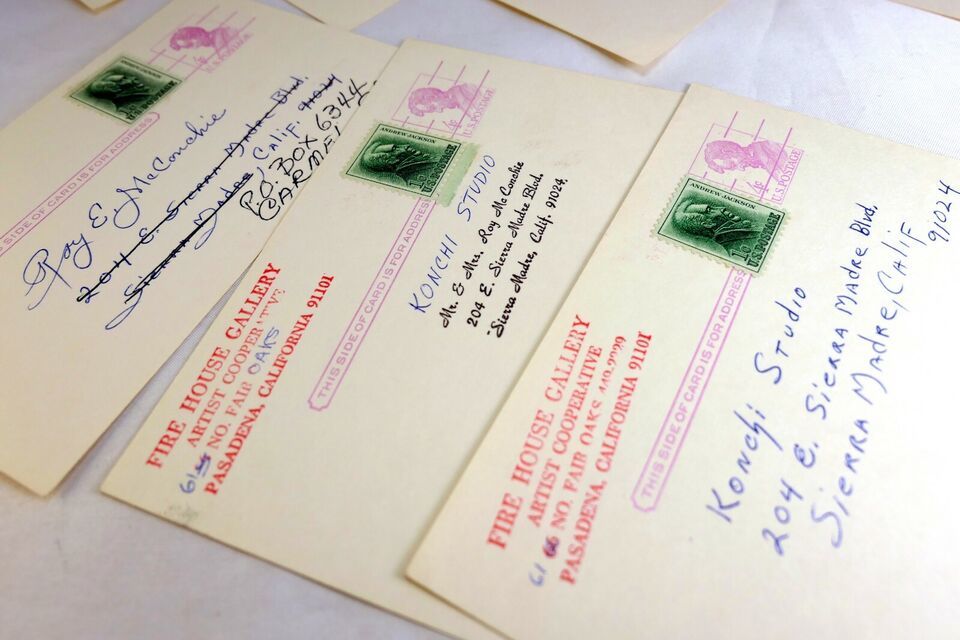 U.S. POSTAGE
THIS SIDE OF CARD IS FOR ADDRESS
Roy E McConchie
204 E. Sierra Madre Blvd.
Sierra Madre, Calif. 91024
P.O. BOX 6344
CARMEL
ANDREW JACKSON
1c
U.S. POSTAGE
4c
U.S. POSTAGE
THIS SIDE OF CARD IS FOR ADDRESS
KONCHI STUDIO
Mr. & Mrs. Roy McConchie
204 E. Sierra Madre Blvd.
Sierra Madre, Calif. 91024
FIRE HOUSE GALLERY
ARTIST COOPERATIVE
61 NO. FAIR OAKS
PASADENA, CALIFORNIA 91101
ANDREW JACKSON
1c
U.S. POSTAGE
4c
U.S. POSTAGE
THIS SIDE OF CARD IS FOR ADDRESS
Konchi Studio
204 E. Sierra Madre Blvd.
Sierra Madre, Calif
91024
FIRE HOUSE GALLERY
ARTIST COOPERATIVE
61 NO. FAIR OAKS
PASADENA, CALIFORNIA 91101